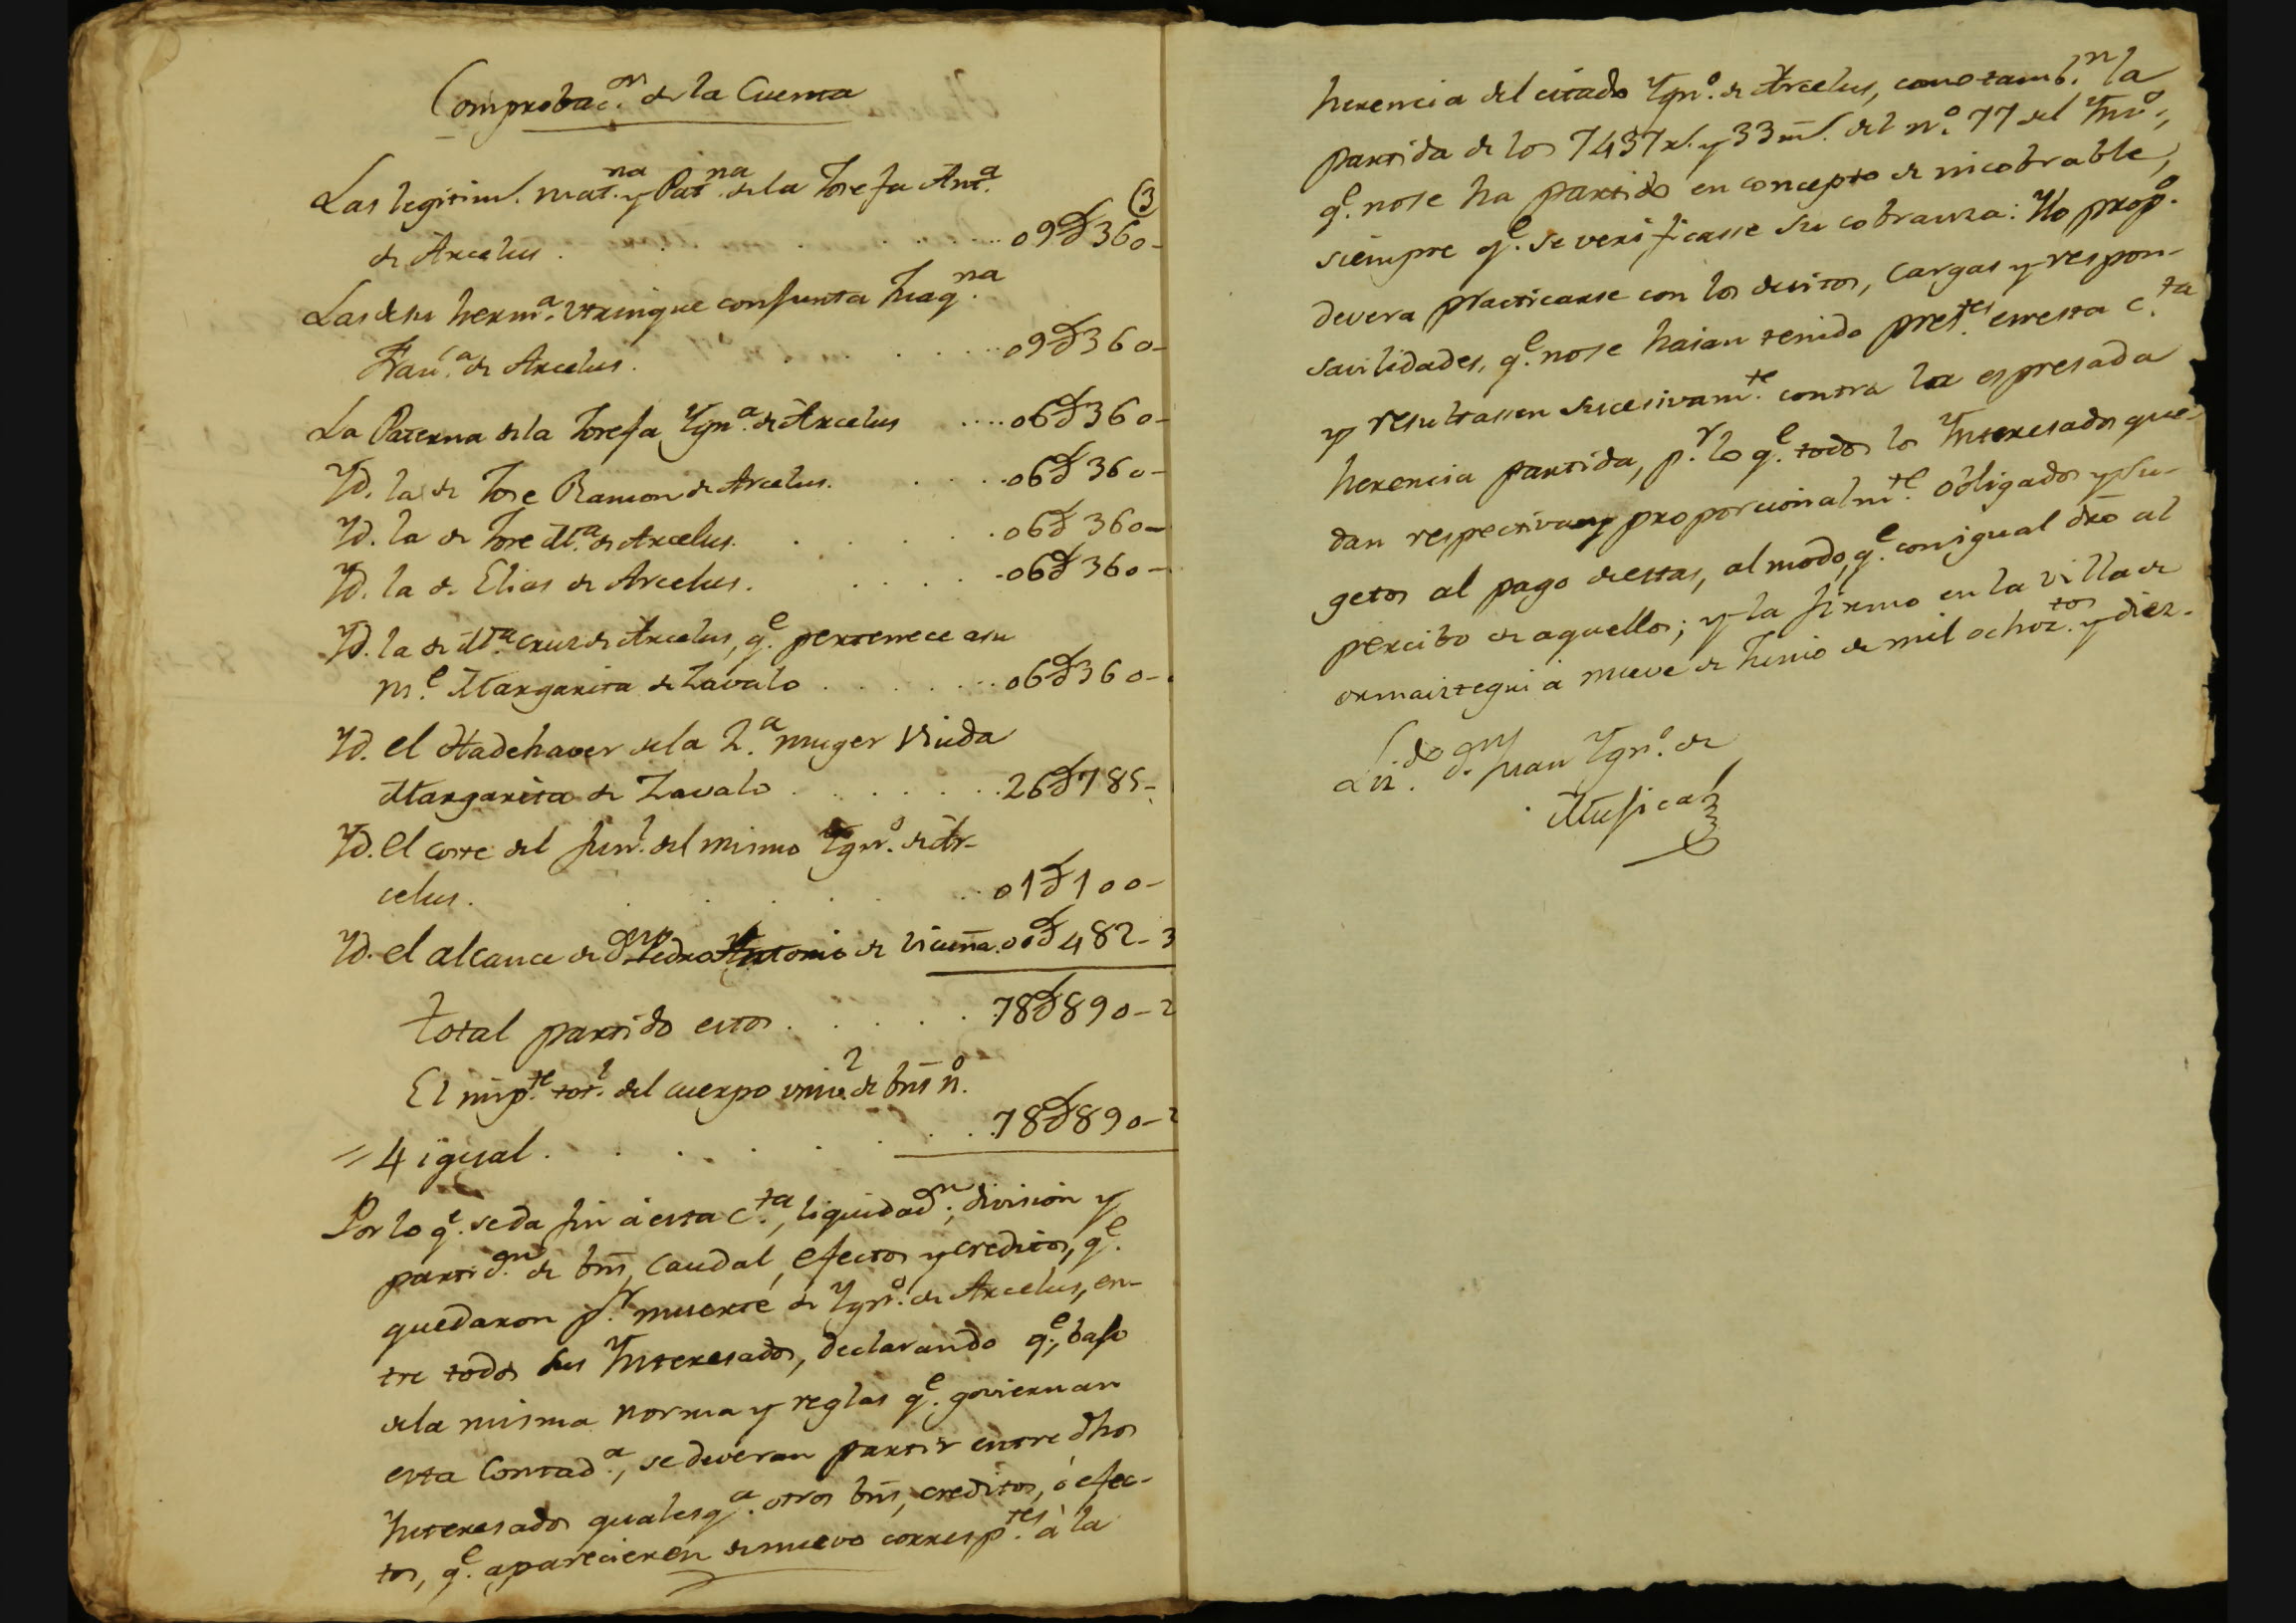 Comprobac.on de la Cuenta
Las legitim.s mat.na y Pat.na de la Josefa Ant.a
de Arcelus . . . . . 09D360-
(3
Las de su herm.a utrinque conjunta Juaq.na
Fran.ca de Arcelus . . . . . 09D360-
La Paterna de la Josefa Ygn.a de Arcelus .... 06D360-
Yd. la de Jose Ramon de Arcelus . . . . 06D360-
Yd. la de Jose M.a de Arcelus . . . . . 06D360-
Yd. la de Elias de Arcelus . . . . . 06D360-
Yd. la de M.a Cruz de Arcelus, q.e pertenece a su
m.e Margarita de Zavalo . . . . . 06D360-
Yd. el Hadehaver de la 2.a muger viuda
Margarita de Zavalo . . . . . 26D785-
Yd. el coste del fun.l del mismo Ygn.o de Ar-
celus . . . . . 01D100-
Yd. el alcance de D.n Pedro Antonio de Vicuña . 00D482-3
total partido estos . . . . . 78D890-2
El imp.te tot.l del cuerpo univ.l de bns n.o
= 4 igual . . . . . 78D890-2
Por lo q.e se da fin á esta c.ta, liquidac.on, division y
partic.on de bns, caudal, efectos y creditos, q.e
quedaron p.r muerte de Ygn.o de Arcelus, en-
tre todos sus Ynteresados, declarando q.e, bajo
de la misma norma y reglas q.e goviernan
esta Contad.a, se deveran partir entre dhos
Ynteresados qualesq.a otros bns, creditos, ó efec-
tos, q.e aparecieren de nuevo corresp.tes á la
herencia del citado Ygn.o de Arcelus, como tamb.n la
partida de los 7437 r.s y 33 m.s del n.o 77 del Ynv.o,
q.e no se ha partido en concepto de incobrable,
siempre q.e se verificasse su cobranza: Yo prop.o
devera practicarse con los devitos, cargas y respon-
savilidades, q.e no se haian tenido pres.tes en esta c.ta
y resultassen sucesivam.te contra la espresada
herencia partida, p.r lo q.e todos los Ynteresados que-
dan respectiva y proporcionalm.te obligados y su-
getos al pago de estas, al modo, q.e con igual dro al
percibo de aquellos; y la firmo en la villa de
ormaiztegui á nueve de Junio de mil ochoz.tos y diez.
Liz.do D.n Juan Ygn.o de
Mujica